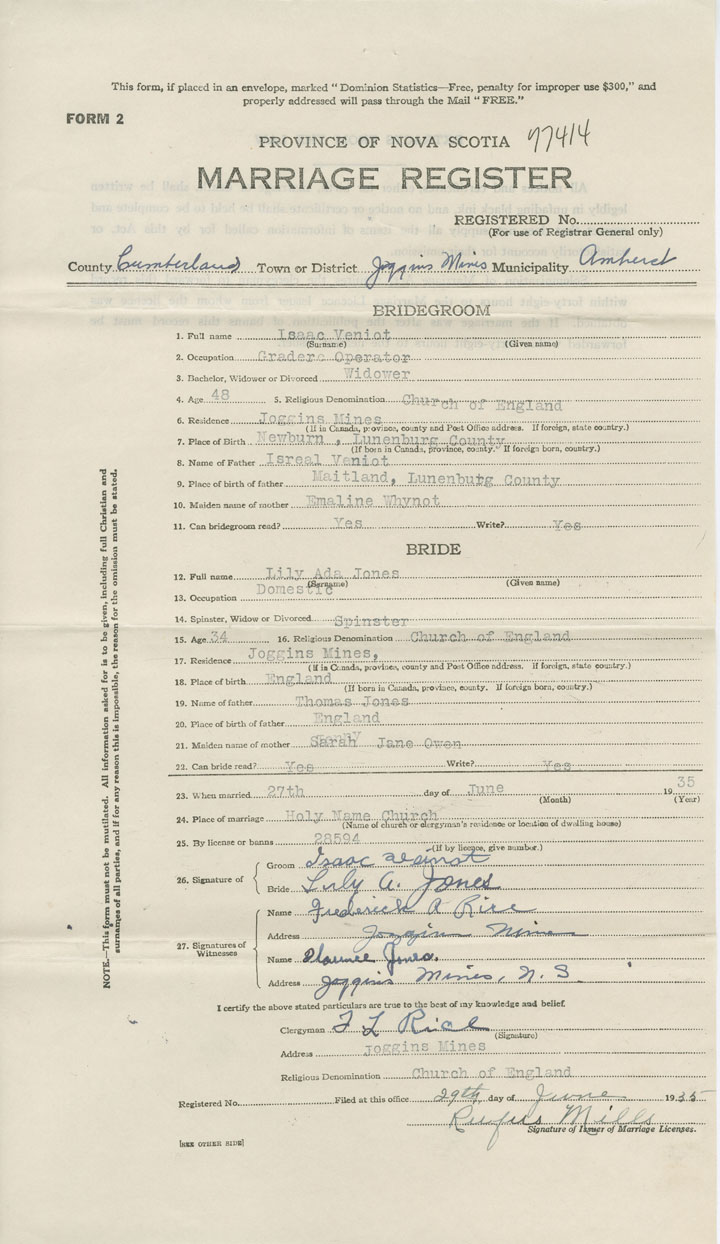 This form, if placed in an envelope, marked "Dominion Statistics—Free, penalty for improper use $300," and
properly addressed will pass through the Mail "FREE."
FORM 2
PROVINCE OF NOVA SCOTIA 97414
MARRIAGE REGISTER
REGISTERED No.
(For use of Registrar General only)
County Cumberland Town or District Joggins Mines Municipality Amherst
BRIDEGROOM
1. Full name Isaac Veniot
(Surname) (Given name)
2. Occupation Grader Operator
3. Bachelor, Widower or Divorced Widower
4. Age 48 5. Religious Denomination Church of England
6. Residence Joggins Mines
(If in Canada, province, county and Post Office address. If foreign, state country.)
7. Place of Birth Newburn, Lunenburg County
(If born in Canada, province, county. If foreign born, country.)
8. Name of Father Isreal Veniot
9. Place of birth of father Maitland, Lunenburg County
10. Maiden name of mother Emaline Whynot
11. Can bridegroom read? Yes Write? Yes
BRIDE
12. Full name Lily Ada Jones
(Surname) (Given name)
13. Occupation Domestic
14. Spinster, Widow or Divorced Spinster
15. Age 34 16. Religious Denomination Church of England
17. Residence Joggins Mines,
(If in Canada, province, county and Post Office address. If foreign, state country.)
18. Place of birth England
(If born in Canada, province, county. If foreign born, country.)
19. Name of father Thomas Jones
20. Place of birth of father England
21. Maiden name of mother Sarah Jane Owen
22. Can bride read? Yes Write? Yes
23. When married 27th day of June 1935
(Month) (Year)
24. Place of marriage Holy Name Church
(Name of church or clergyman's residence or location of dwelling house)
25. By license or banns 28594
(If by licence, give number.)
26. Signature of Groom Isaac
Bride Lily A. Jones
27. Signatures of Witnesses
Name Frederick A Rice
Address Joggins Mines
Name Jones.
Address Joggins Mines, N. S
I certify the above stated particulars are true to the best of my knowledge and belief.
Clergyman F L Rice
(Signature)
Address Joggins Mines
Religious Denomination Church of England
Registered No. Filed at this office 29th day of June 1935
Rufus Mills
Signature of Issuer of Marriage Licenses.
[SEE OTHER SIDE]
NOTE.—This form must not be mutilated. All information asked for is to be given, including full Christian and
surnames of all parties, and if for any reason this is impossible, the reason for the omission must be stated.